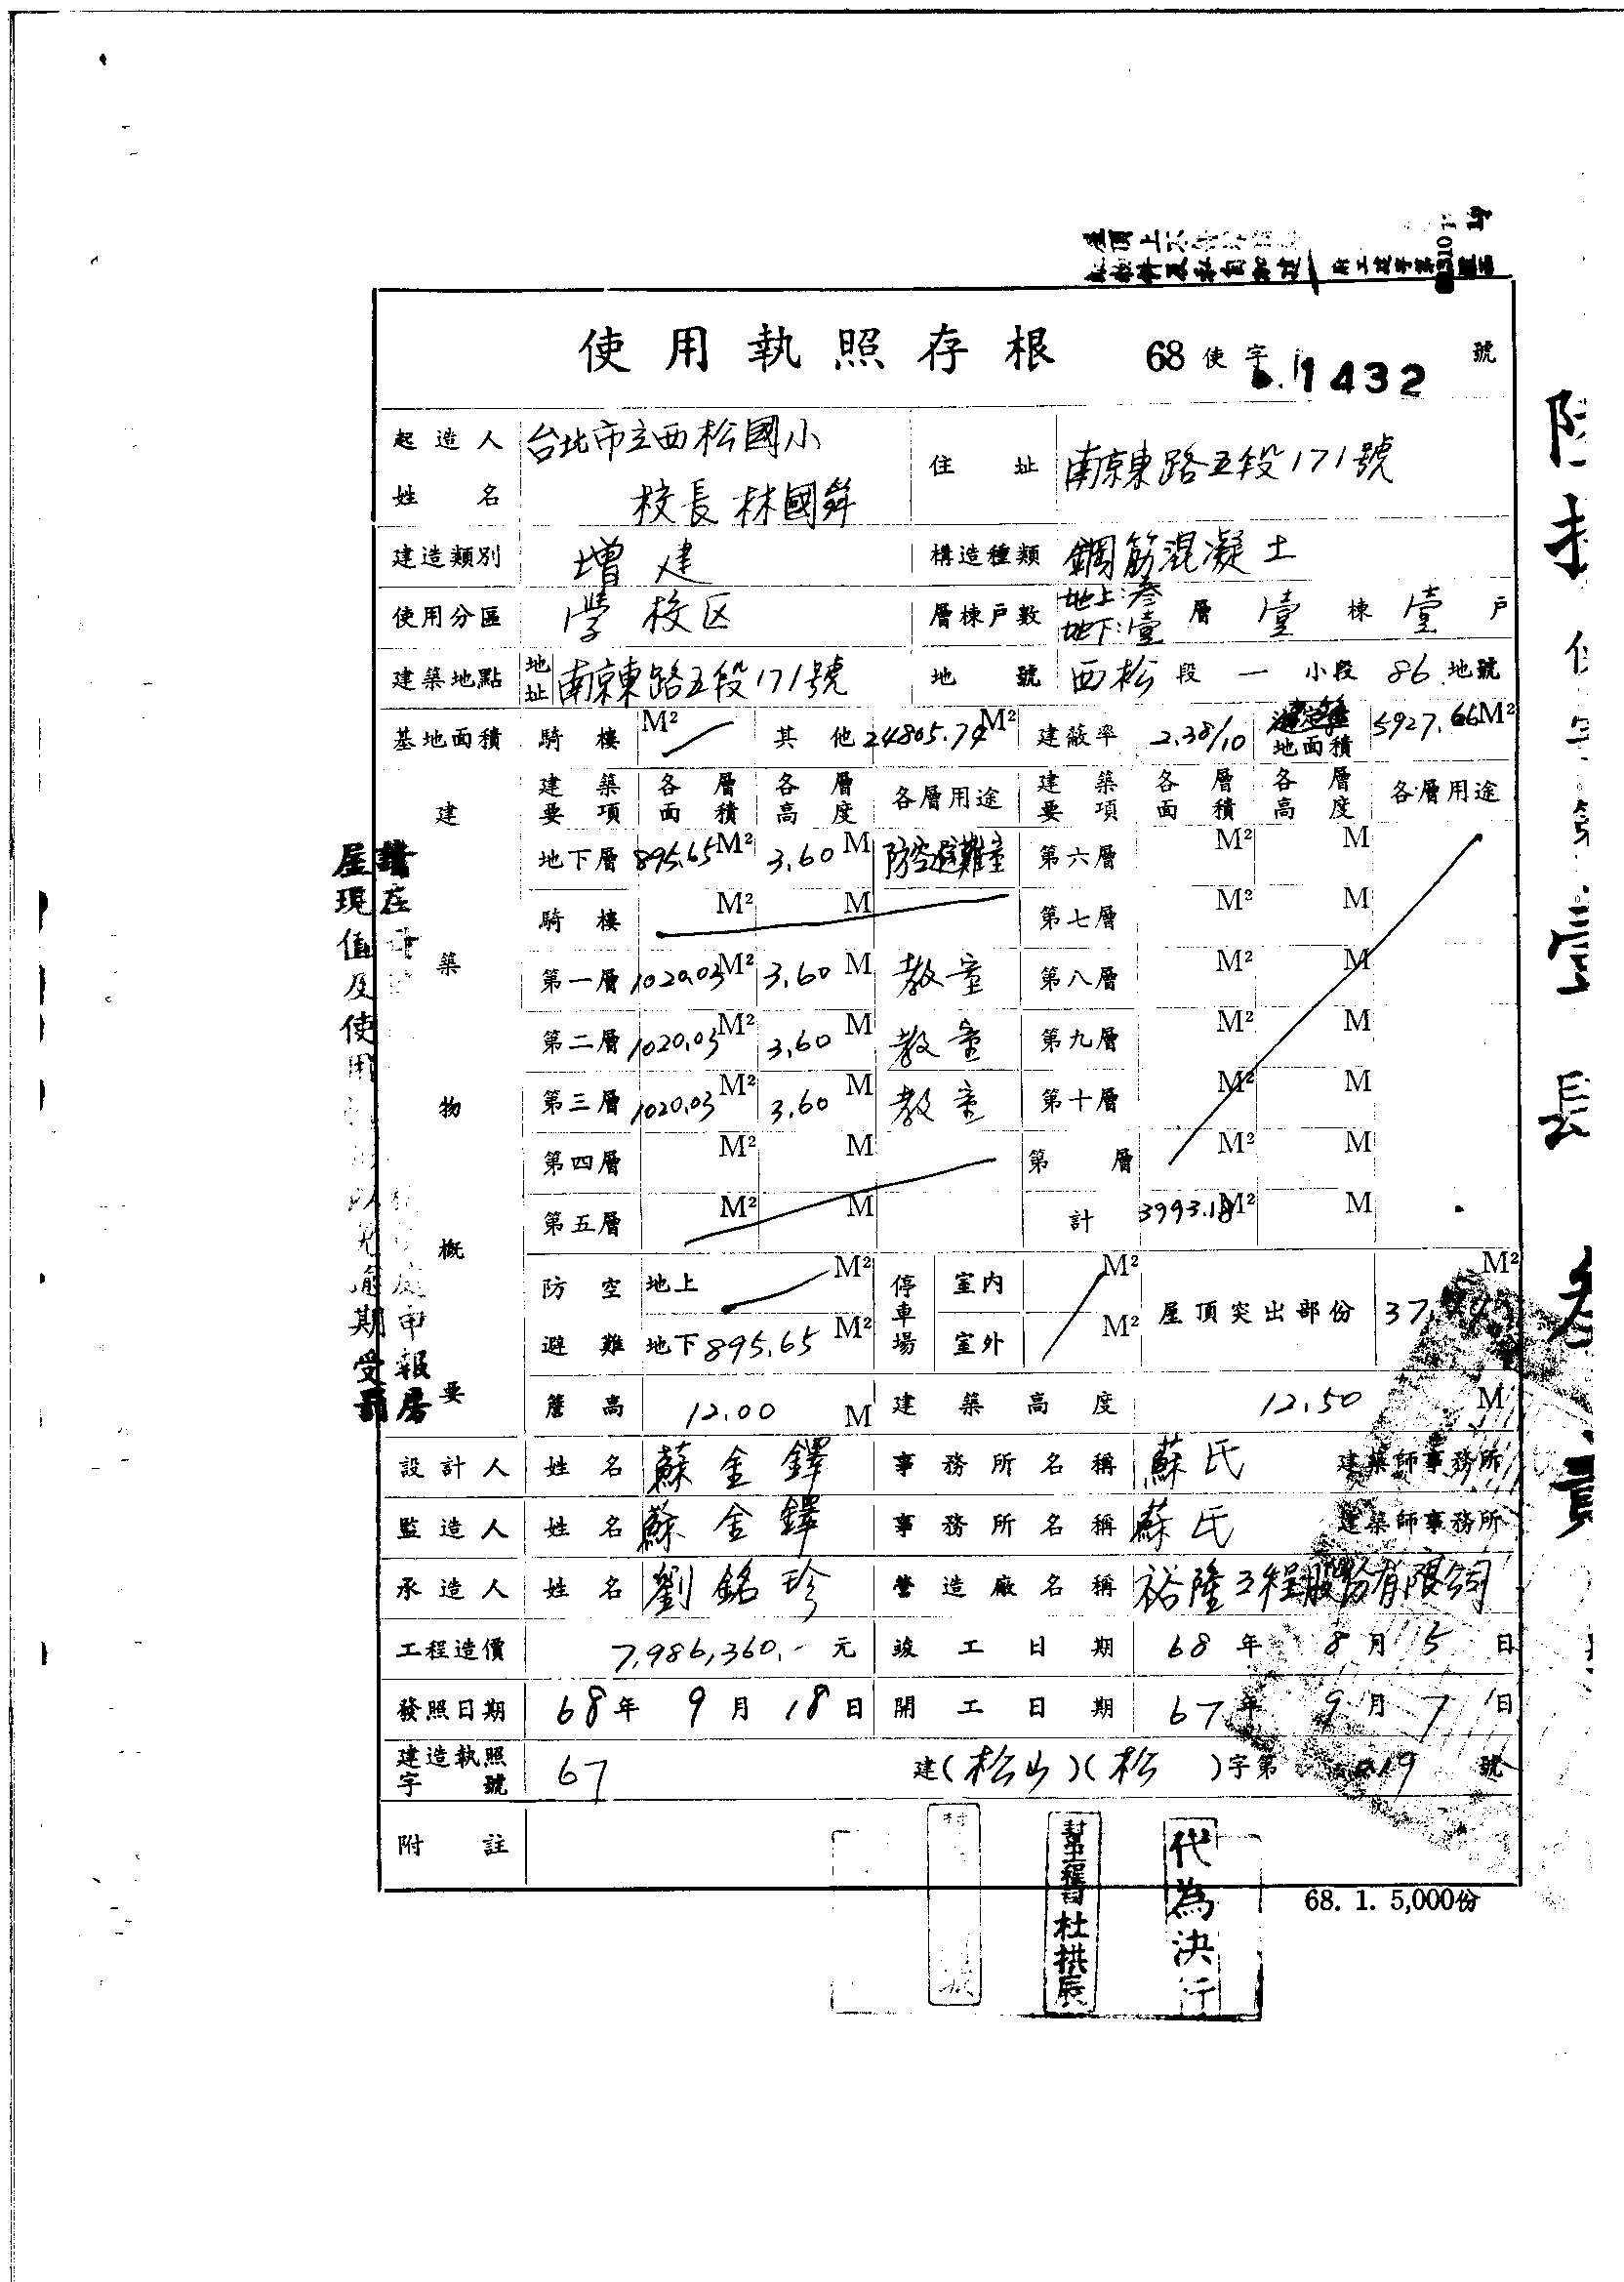 使用執照存根 68使字 1432 號
起造人姓名 台北市立西松國小 校長 林國舜 住址 南京東路五段171號
建造類別 增建 構造種類 鋼筋混凝土
使用分區 學校区 層棟戶數 地上:叁 地下:壹 層 壹 棟 壹 戶
建築地點 地址 南京東路五段171號 地號 西松段 一 小段 86 地號
基地面積 騎樓 M² 其他 24805.74 M² 建蔽率 2.38/10 地面積 5927.66 M²
建築物概要
建築要項 各層面積 各層高度 各層用途 建築要項 各層面積 各層高度 各層用途
地下層 895.65 M² 3.60 M 防空避難室 第六層 M² M
騎樓 M² M 第七層 M² M
第一層 1020.03 M² 3.60 M 教室 第八層 M² M
第二層 1020.03 M² 3.60 M 教室 第九層 M² M
第三層 1020.03 M² 3.60 M 教室 第十層 M² M
第四層 M² M 第 層 M² M
第五層 M² M 計 3993.18 M² M
防空避難 地上 M² 停車場 室內 M² 屋頂突出部份 37. M²
地下 895.65 M² 室外 M²
簷高 12.00 M 建築高度 12.50 M
設計人 姓名 蘇金鐸 事務所名稱 蘇氏 建築師事務所
監造人 姓名 蘇金鐸 事務所名稱 蘇氏 建築師事務所
承造人 姓名 劉銘珍 營造廠名稱 裕隆工程股份有限公司
工程造價 7,986,360.- 元 竣工日期 68年 8月 5日
發照日期 68年 9月 18日 開工日期 67年 9月 7日
建造執照字號 67 建(松山)(松 )字第 019 號
附註
代為決行
杜拱辰
68. 1. 5,000份